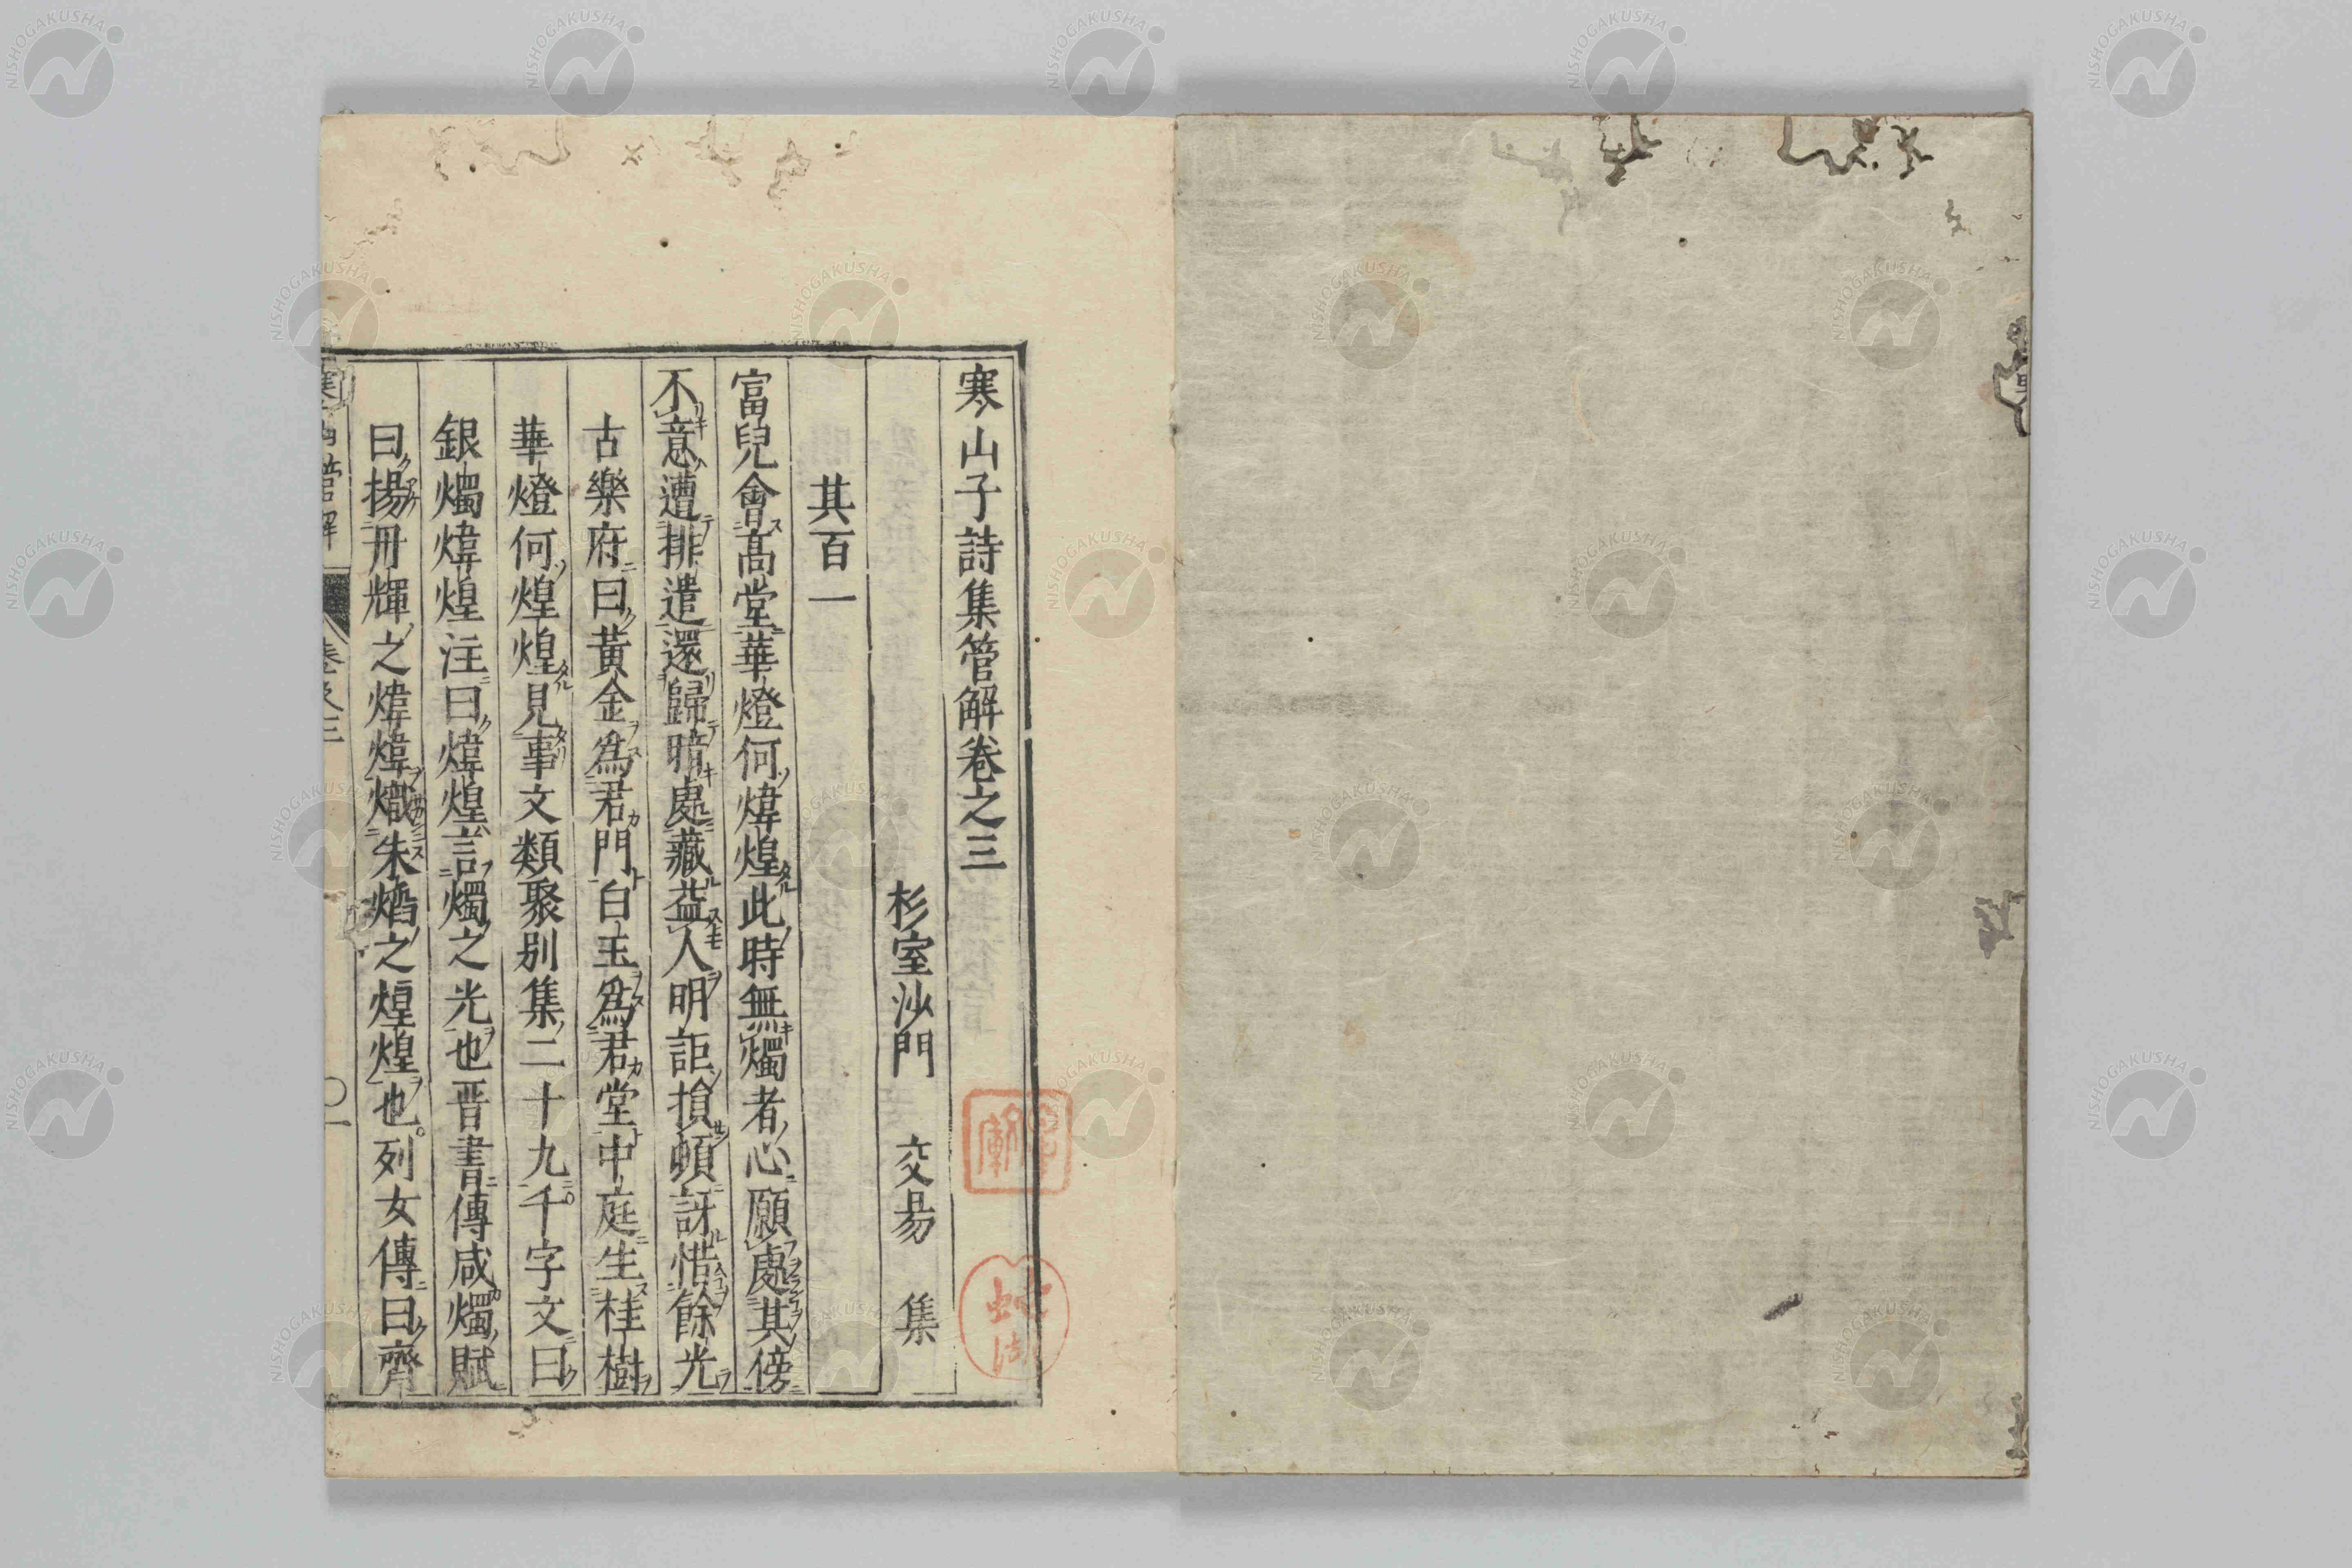 寒山子詩集管解卷之三
杉室沙門 交易 集
其百一
富兒會高堂華燈何煒煌此時無燭者心願處其傍
不意遭排遣還歸暗處藏益人明詎損頓訝惜餘光
古樂府曰黃金為君門白玉為君堂中庭生桂樹
華燈何煌煌見事文類聚別集二十九千字文曰
銀燭煒煌注曰煒煌言燭之光也晋書傳咸燭賦
曰揚丹輝之煒煒熾朱焰之煌煌也列女傳曰齊